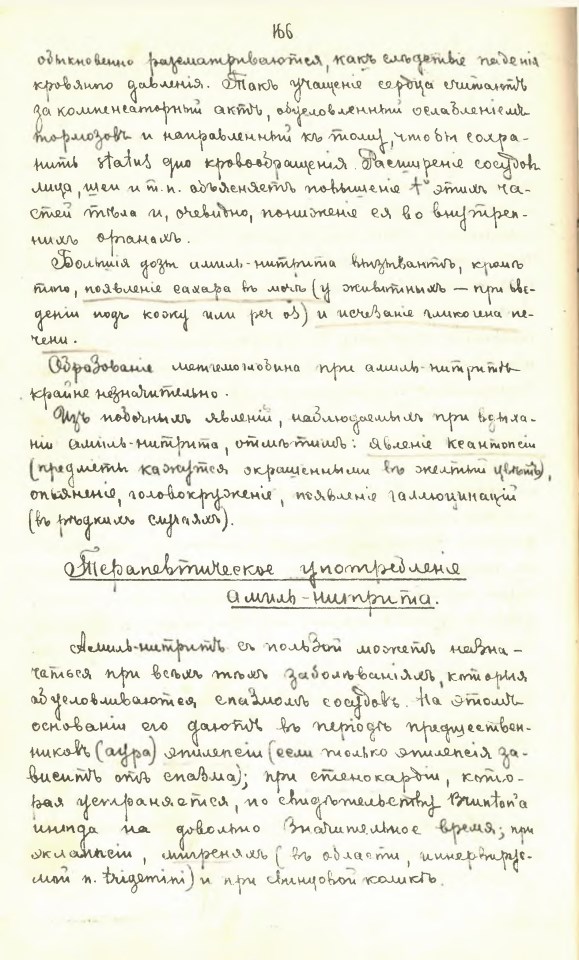 166
обыкновенно разсматриваются, какъ слѣдствіе паденія
кровяного давленія. Такъ учащеніе сердца считаютъ
за компенсаторный актъ, обусловленный ослабленіемъ
тормозовъ и направленный къ тому, чтобы сохра-
нить status quo кровообращенія. Расширеніе сосудовъ
лица, шеи и т.п. объясняетъ повышеніе t° этихъ ча-
стей тѣла и, очевидно, пониженіе ея во внутрен-
нихъ органахъ.
Большія дозы амиль-нитрита вызываютъ, кромѣ
того, появленіе сахара въ мочѣ (у животныхъ — при вве-
деніи подъ кожу или per os) и исчезаніе гликогена пе-
чени.
Образованіе метгемоглобина при амиль-нитритѣ
крайне незначительно.
Изъ побочныхъ явленій, наблюдаемыхъ при вдыха-
ніи амиль-нитрита, отмѣтимъ: явленіе ксантопсіи
(предметы кажутся окрашенными въ желтый цвѣтъ),
опьяненіе, головокруженіе, появленіе галлюцинацій
(въ рѣдкихъ случаяхъ).
Терапевтическое употребленіе
амиль-нитрита.
Амиль-нитритъ съ пользой можетъ назна-
чаться при всѣхъ тѣхъ заболѣваніяхъ, которыя
обусловливаются спазмомъ сосудовъ. На этомъ
основаніи его даютъ въ періодѣ предшествен-
никовъ (аура) эпилепсіи (если только эпилепсія за-
виситъ отъ спазма); при стенокардіи, кото-
рая устраняется, по свидѣтельству Brunton'а
иногда на довольно значительное время; при
эклампсіи, мигреняхъ (въ области, иннервируе-
мой n. trigemini) и при свинцовой коликѣ.